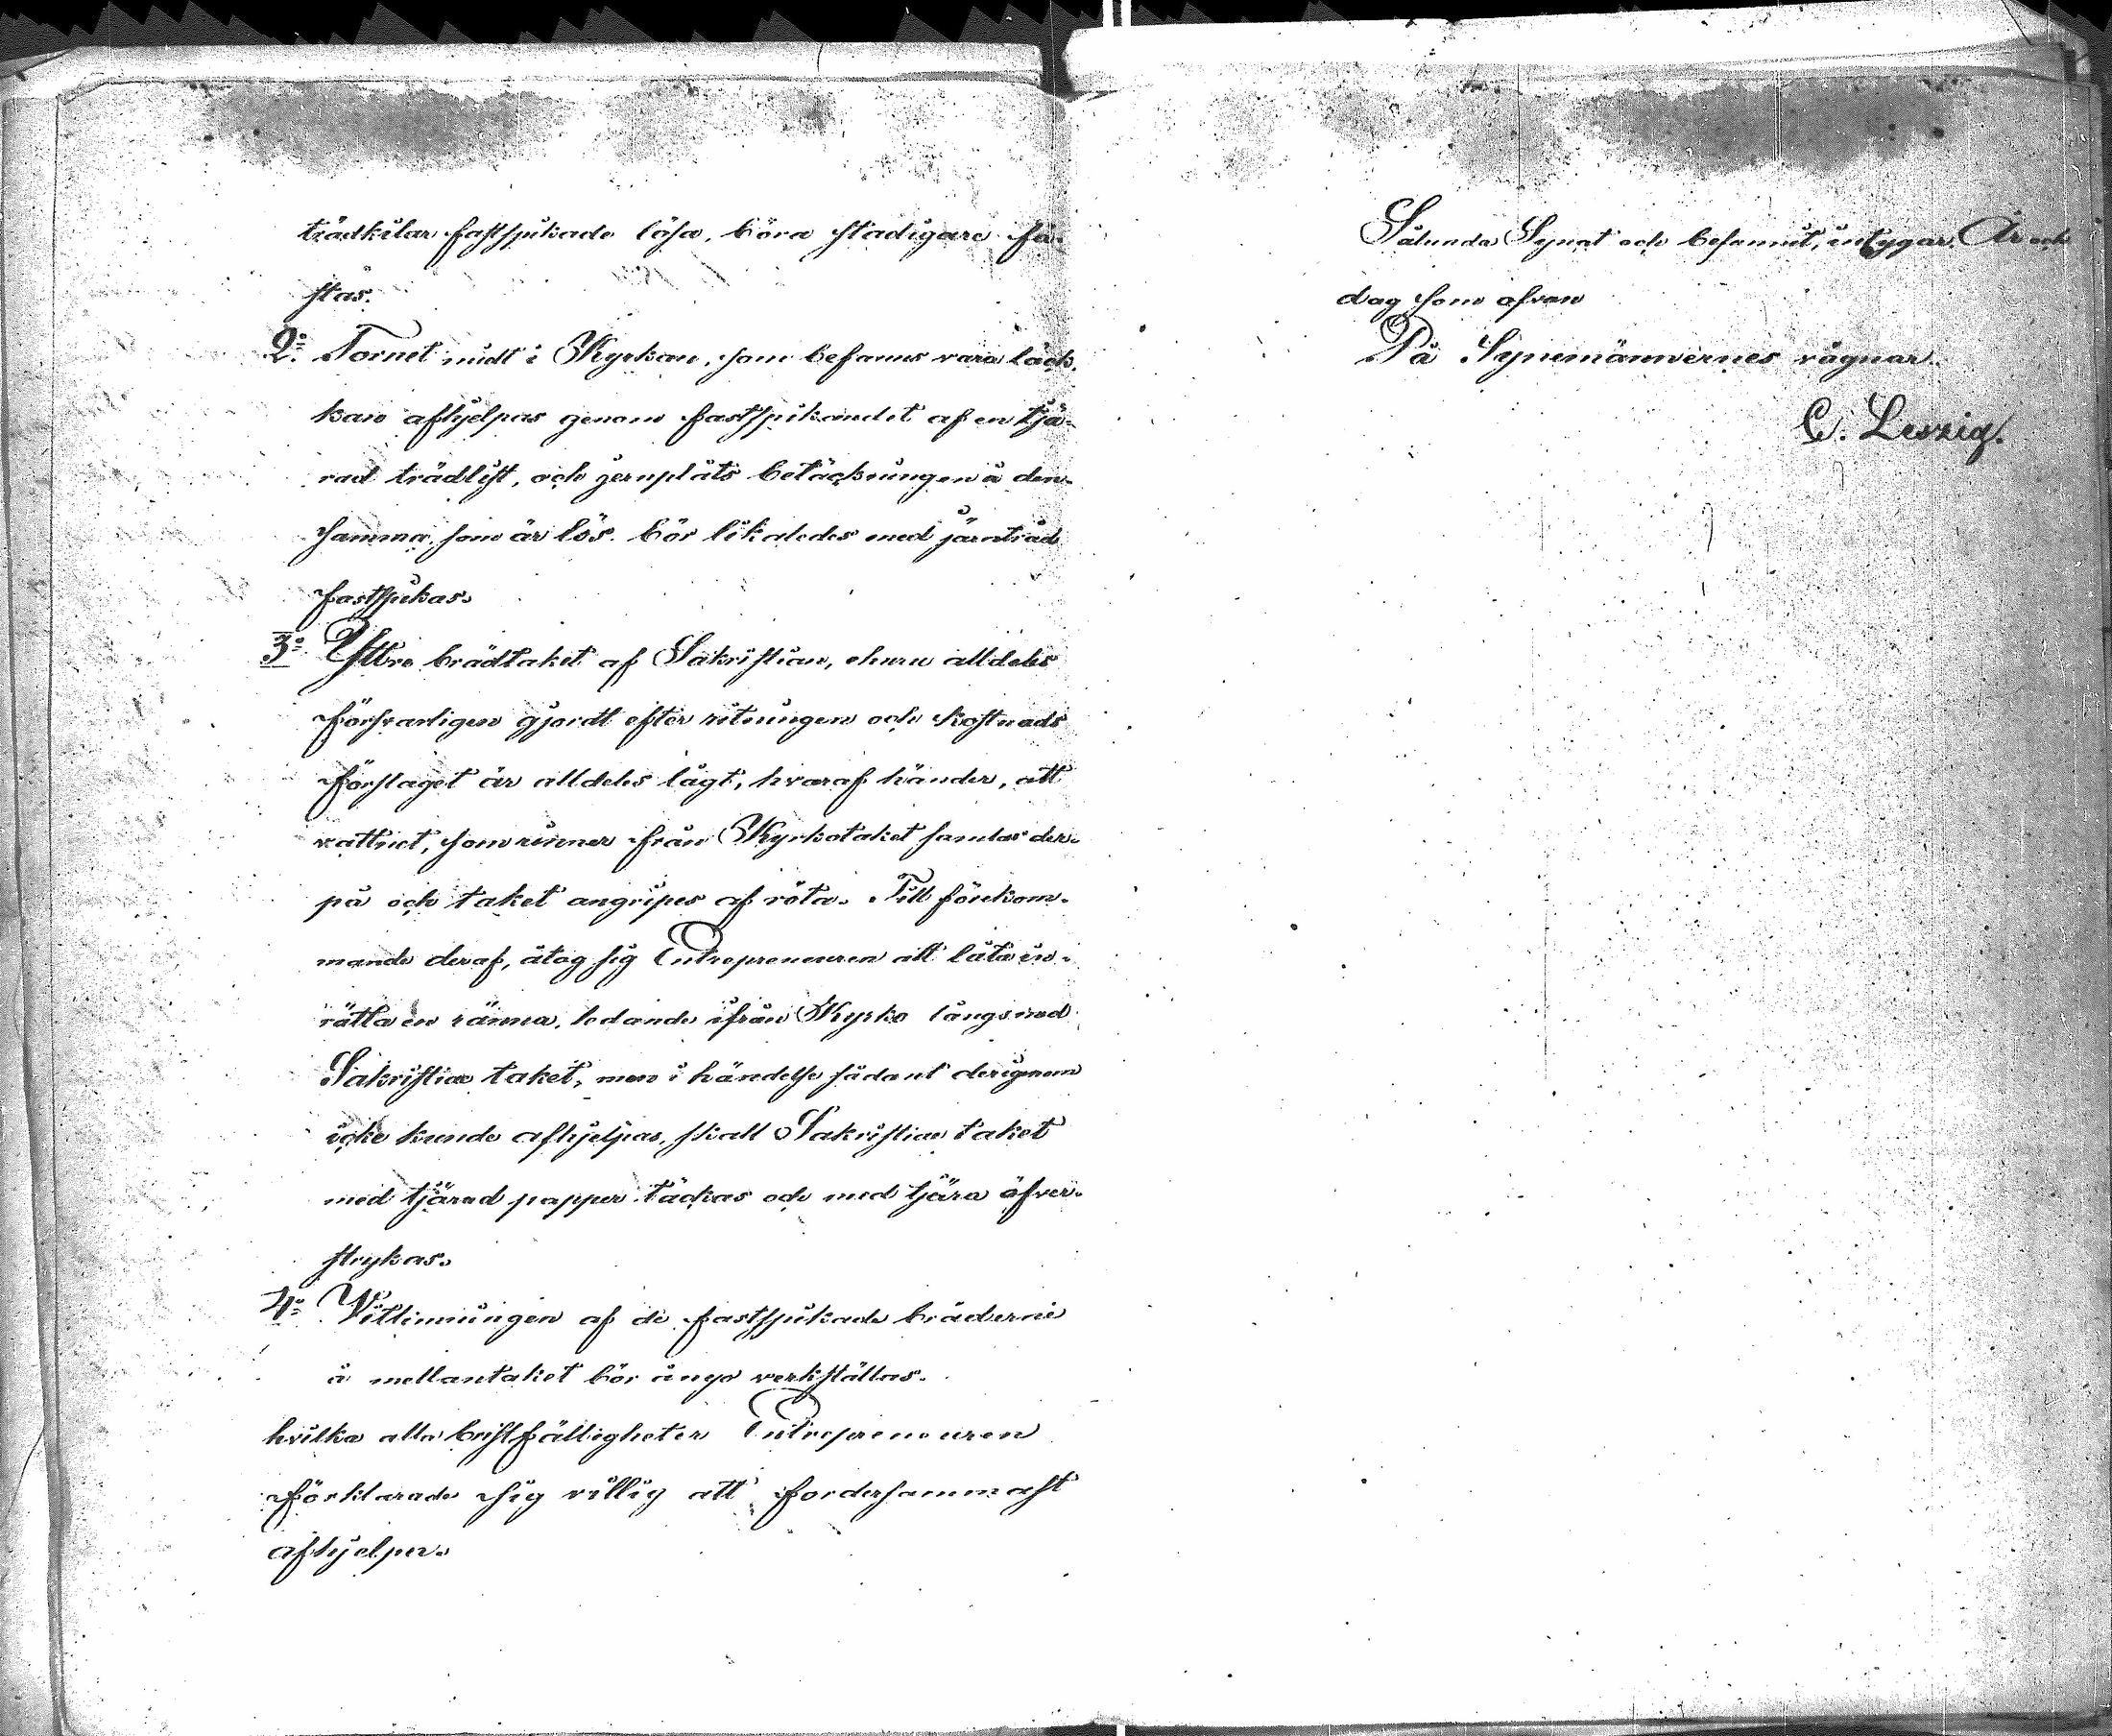 trädkilar fastspikade lösa, böra stadigare fä-
stas.
2:o Tornet midt i Kyrkan, som befanns vara läck,
kan afhjelpas genom fastspikandet af en tjä-
rad trädlist, och jernplåts betäckningen å den-
samma, som är lös, bör likaledes med järntråd
fastspikas.
3:o Yttre brädtaket af Sakristian, ehuru alldeles
försvarligen gjordt efter ritningen och kostnads
förslaget är alldeles lågt, hvaraf händer, att
vattnet, som rinner från Kyrkotaket samlas der-
på och taket angripes af röta. Till förekom-
mande deraf, åtog sig Entrepreneuren att låta in-
rätta en ränna, ledande ifrån Kyrko långs med
Sakristiae taket, men i händelse sådant derigenom
icke kunde afhjelpas, skall Sakristiae taket
med tjärad papper täckas och med tjära öfver-
strykas.
4:o Vitlimningen af de fastspikade bräderne
å mellantaket bör ånyo verkställas.
hvilka alla bristfälligheter Entrepreneuren
förklarade sig villig att fordersammast
afhjelpa.
Sålunda Synat och befunnit, intygar, År och
dag som ofvan
På Synemännernes vägnar.
C. Leszig.